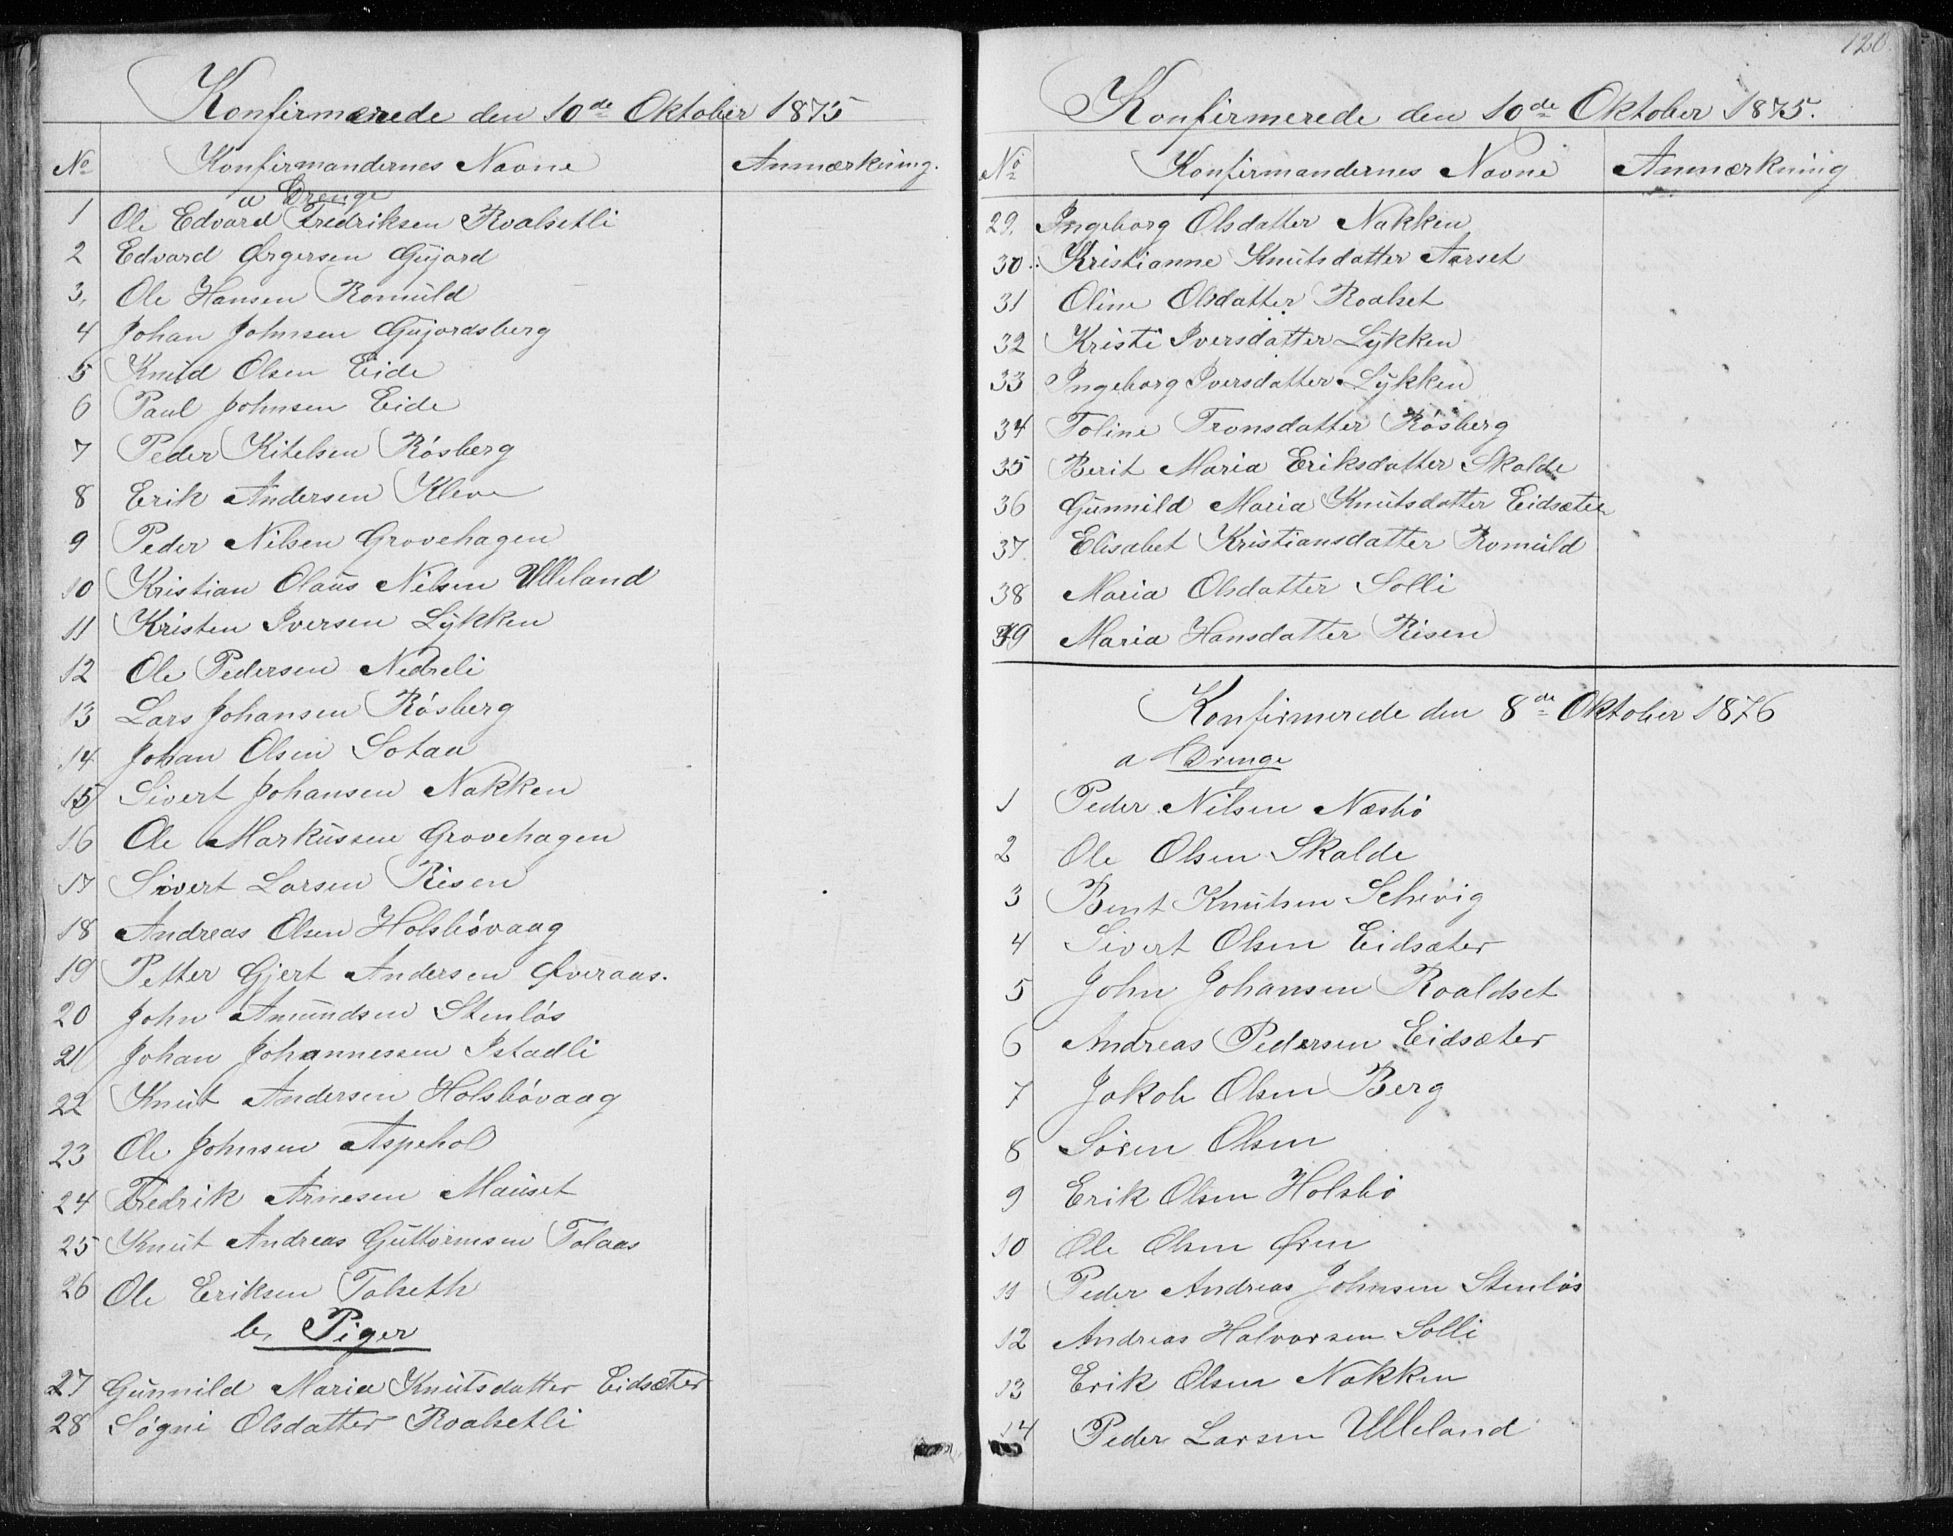 Konfirmerede den 10de Oktober 1875
No Konfirmandernes Navne Anmærkning.
a Drenge
1 Ole Edvard Fredriksen Roalsetli
2 Edvard Ørgersen Gujord
3, Ole Hansen Romuld
4 Johan Johnsen Gujordsberg
5 Knud Olsen Eide
6 Paul Johnsen Eide
7 Peder Kitelsen Rósberg
8 Erik Andersen Kleve
9 Peder Nilsen Grovehagen
10 Kristian Olaus Nilsen Ulleland
11 Kristen Iversen Lykken
12 Ole Pedersen Nedreli
13 Lars Johansen Rósberg
14 Johan Olsen Sotaa
15 Sivert Johansen Nakken
16 Ole Markussen Grovehagen
17 Sivert Larsen Risen
18 Andreas Olsen Holsbóvaag
19 Petter Gjert Andersen Øveraas.
20 John Amundsen Stenlós
21 Johan Johannessen Istadli
22 Knut Andersen Holsbóvaag
23 Ole Johnsen Aspehol
24 Fredrik Arnesen Mauset
25 Knut Andreas Guttormsen Tolaas
26 Ole Eriksen Talseth
b, Piger
27 Gunnild Maria Knutsdatter Eidsæter
28 Søgni Olsdatter Roalsetli
120.
Konfirmerede den 10de Oktober 1875.
No Konfirmandernes Navne Anmærkning
29. Ingeborg Olsdatter Nakken
30. Kristianne Knutsdatter Aarset
31 Oline Olsdatter Roalset
32 Kristi Iversdatter Lykken
33 Ingeborg Iversdatter Lykken
34 Toline Tronsdatter Rósberg
35 Berit Maria Eriksdatter Skalde
36 Gunnild Maria Knutsdatter Eidsæter
37 Elisabet Kristiansdatter Romuld
38 Maria Olsdatter Solli
39 Maria Hansdatter Risen
Konfirmerede den 8de Oktober 1876
a Drenge
1 Peder Nilsen Næsbó
2 Ole Olsen Skalde
3 Bent Knutsen Schevig
4 Sivert Olsen Eidsæter
5 John Johansen Roaldset
6 Andreas Pedersen Eidsæter
7 Jakob Olsen Berg
8 Sóren Olsen
9 Erik Olsen Holsbó
10 Ole Olsen Øren
11 Peder Andreas Johnsen Stenlós
12 Andreas Halvorsen Solli
13 Erik Olsen Nakken
14 Peder Larsen Ulleland